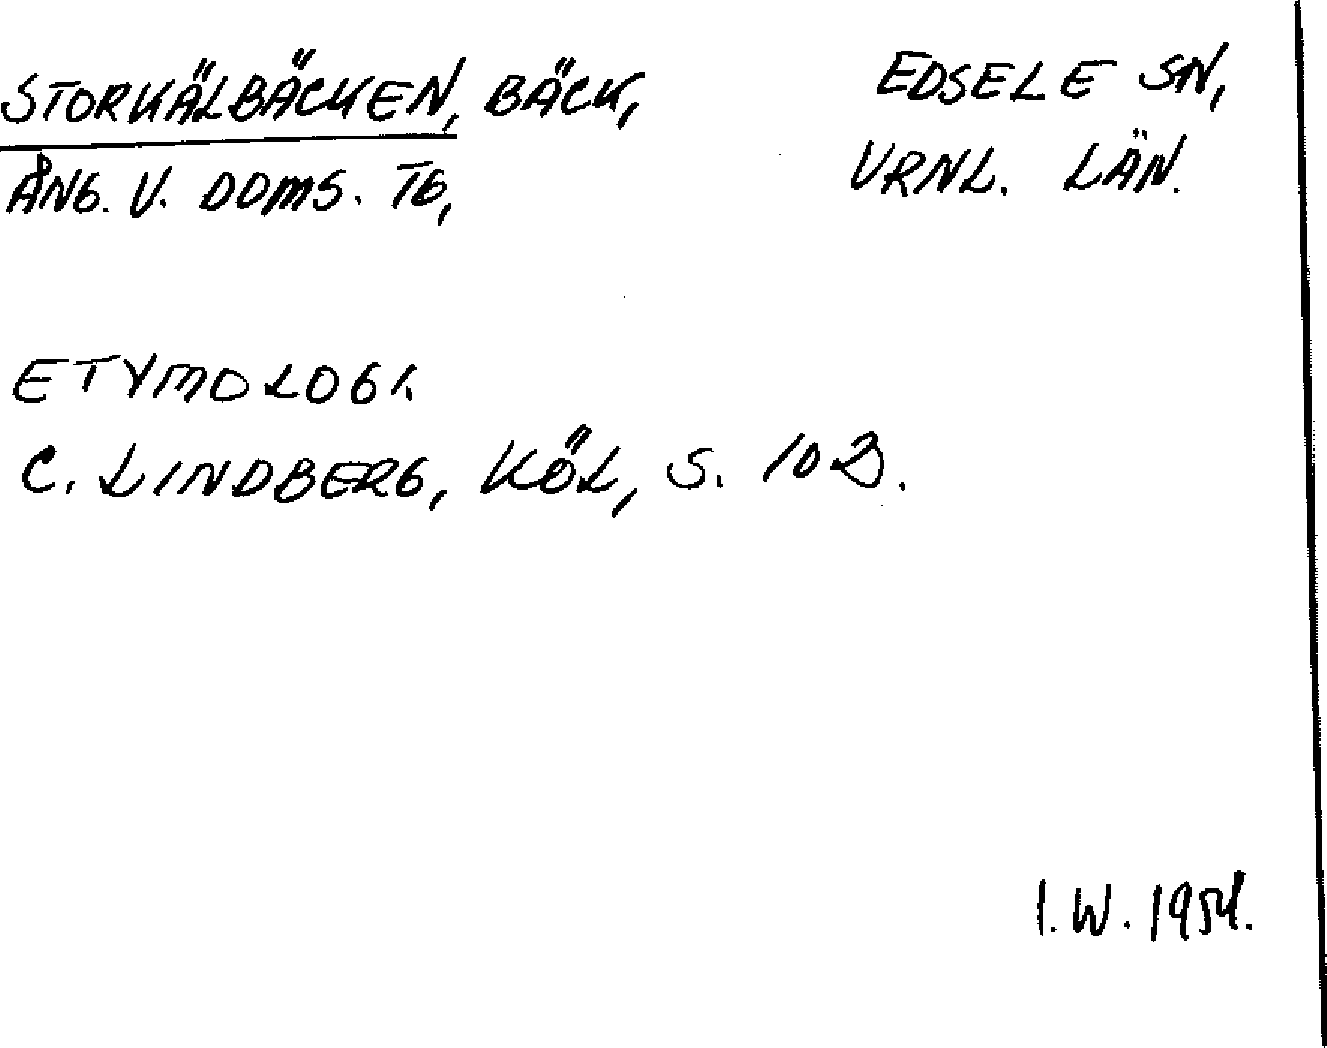 STORKÄLBÄCKEN, BÄCK,
ÅNG. V. DOMS. TG,
EDSELE SN,
VRNL. LÄN.
ETYMOLOGI.
C. LINDBERG, KÖL, S. 102.
I.W. 1954.